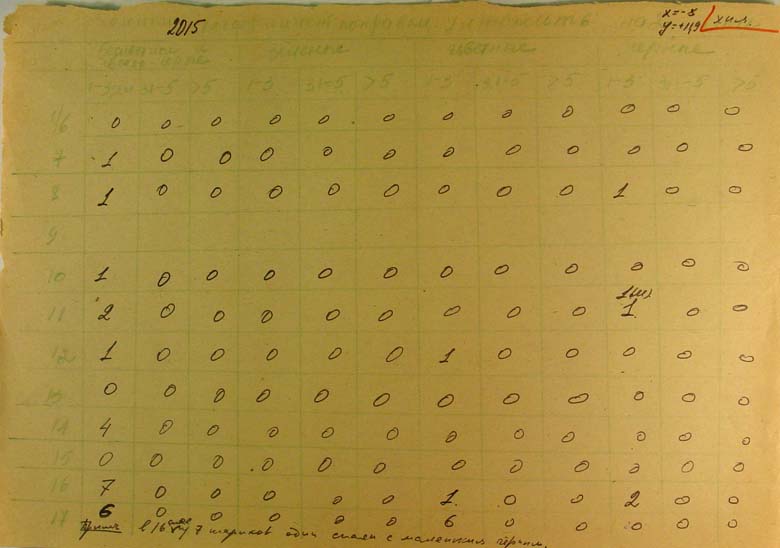 2015
x=-8
y=+11,9 хим.
зеленые цветные черные
1-3 3,1-5 >5 1-3 3,1-5 >5 1-3 3,1-5 >5 1-3 3,1-5 >5
1/6 0 0 0 0 0 0 0 0 0 0 0 0
7 1 0 0 0 0 0 0 0 0 0 0 0
8 1 0 0 0 0 0 0 0 0 1 0 0
9
10 1 0 0 0 0 0 0 0 0 0 0 0
11 2 0 0 0 0 0 0 0 0 1 0 0
12 1 0 0 0 0 0 1 0 0 0 0 0
13 0 0 0 0 0 0 0 0 0 0 0 0
14 4 0 0 0 0 0 0 0 0 0 0 0
15 0 0 0 0 0 0 0 0 0 0 0 0
16 7 0 0 0 0 0 1 0 0 2 0 0
17 6 0 0 0 0 0 6 0 0 0 0 0
Прим. в 16 7 шариков один спаян с маленьким черным.